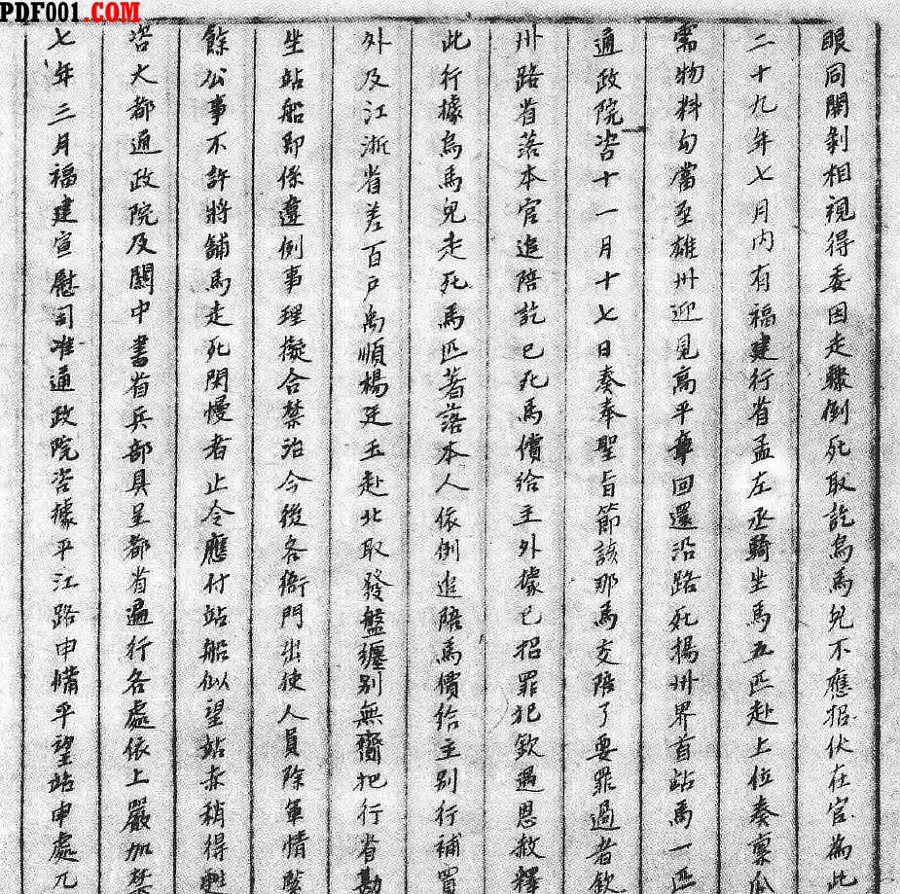 PDF001.COM
眼同開剝相視得委因走驟倒死取訖烏馬兒不應招伏在官為此
二十九年七月内有福建行省孟左丞騎坐馬五匹赴上位奏稟
需物料勾當至雄州迎見高平章回還沿路死揚州界首站馬一匹
通政院咨十一月十七日奏奉聖旨節該那馬交陪了要罪過者欽
州路省落本官追陪訖已死馬價給主外據已招罪犯欽遇恩赦釋
此行據烏馬兒走死馬匹著落本人依例追陪馬價給主別行補買
外及江浙省差百戶萬順楊廷玉赴北取發盤纏別無齎把行省勘
坐站船即係違例事理擬合禁治今後各衙門出使人員除軍情緊
餘公事不許將鋪馬走死閑慢者止令應付站船似望站赤稍得
咨大都通政院及關中書省兵部具呈都省遍行各處依上嚴加禁
七年三月福建宣慰司准通政院咨據平江路申備平望站申處兀